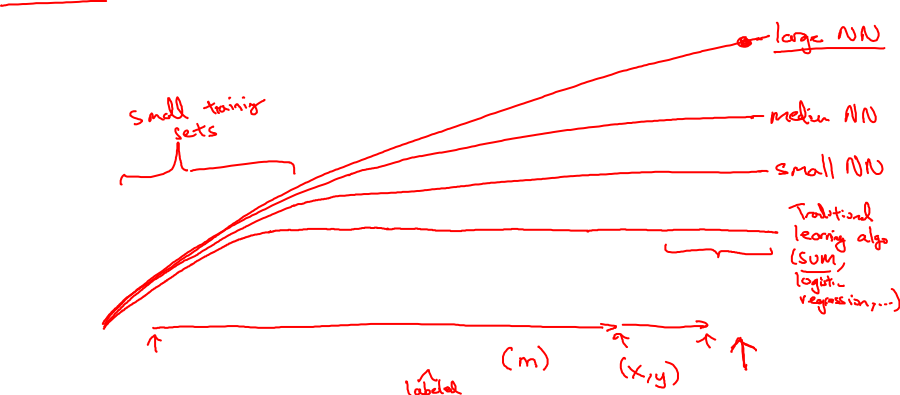 large NN
small training
sets
medium NN
small NN
Traditional
learning algo
(SVM,
logistic
regression,...)
(m)
(x,y)
labeled